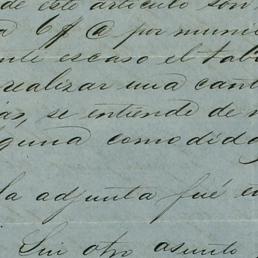 de este artículo son
6 f @ por muni
nte escaso el tab
realizar una cant
as, se entiende de n
guna comodida
la adjunta fué e
Sin otro asunto